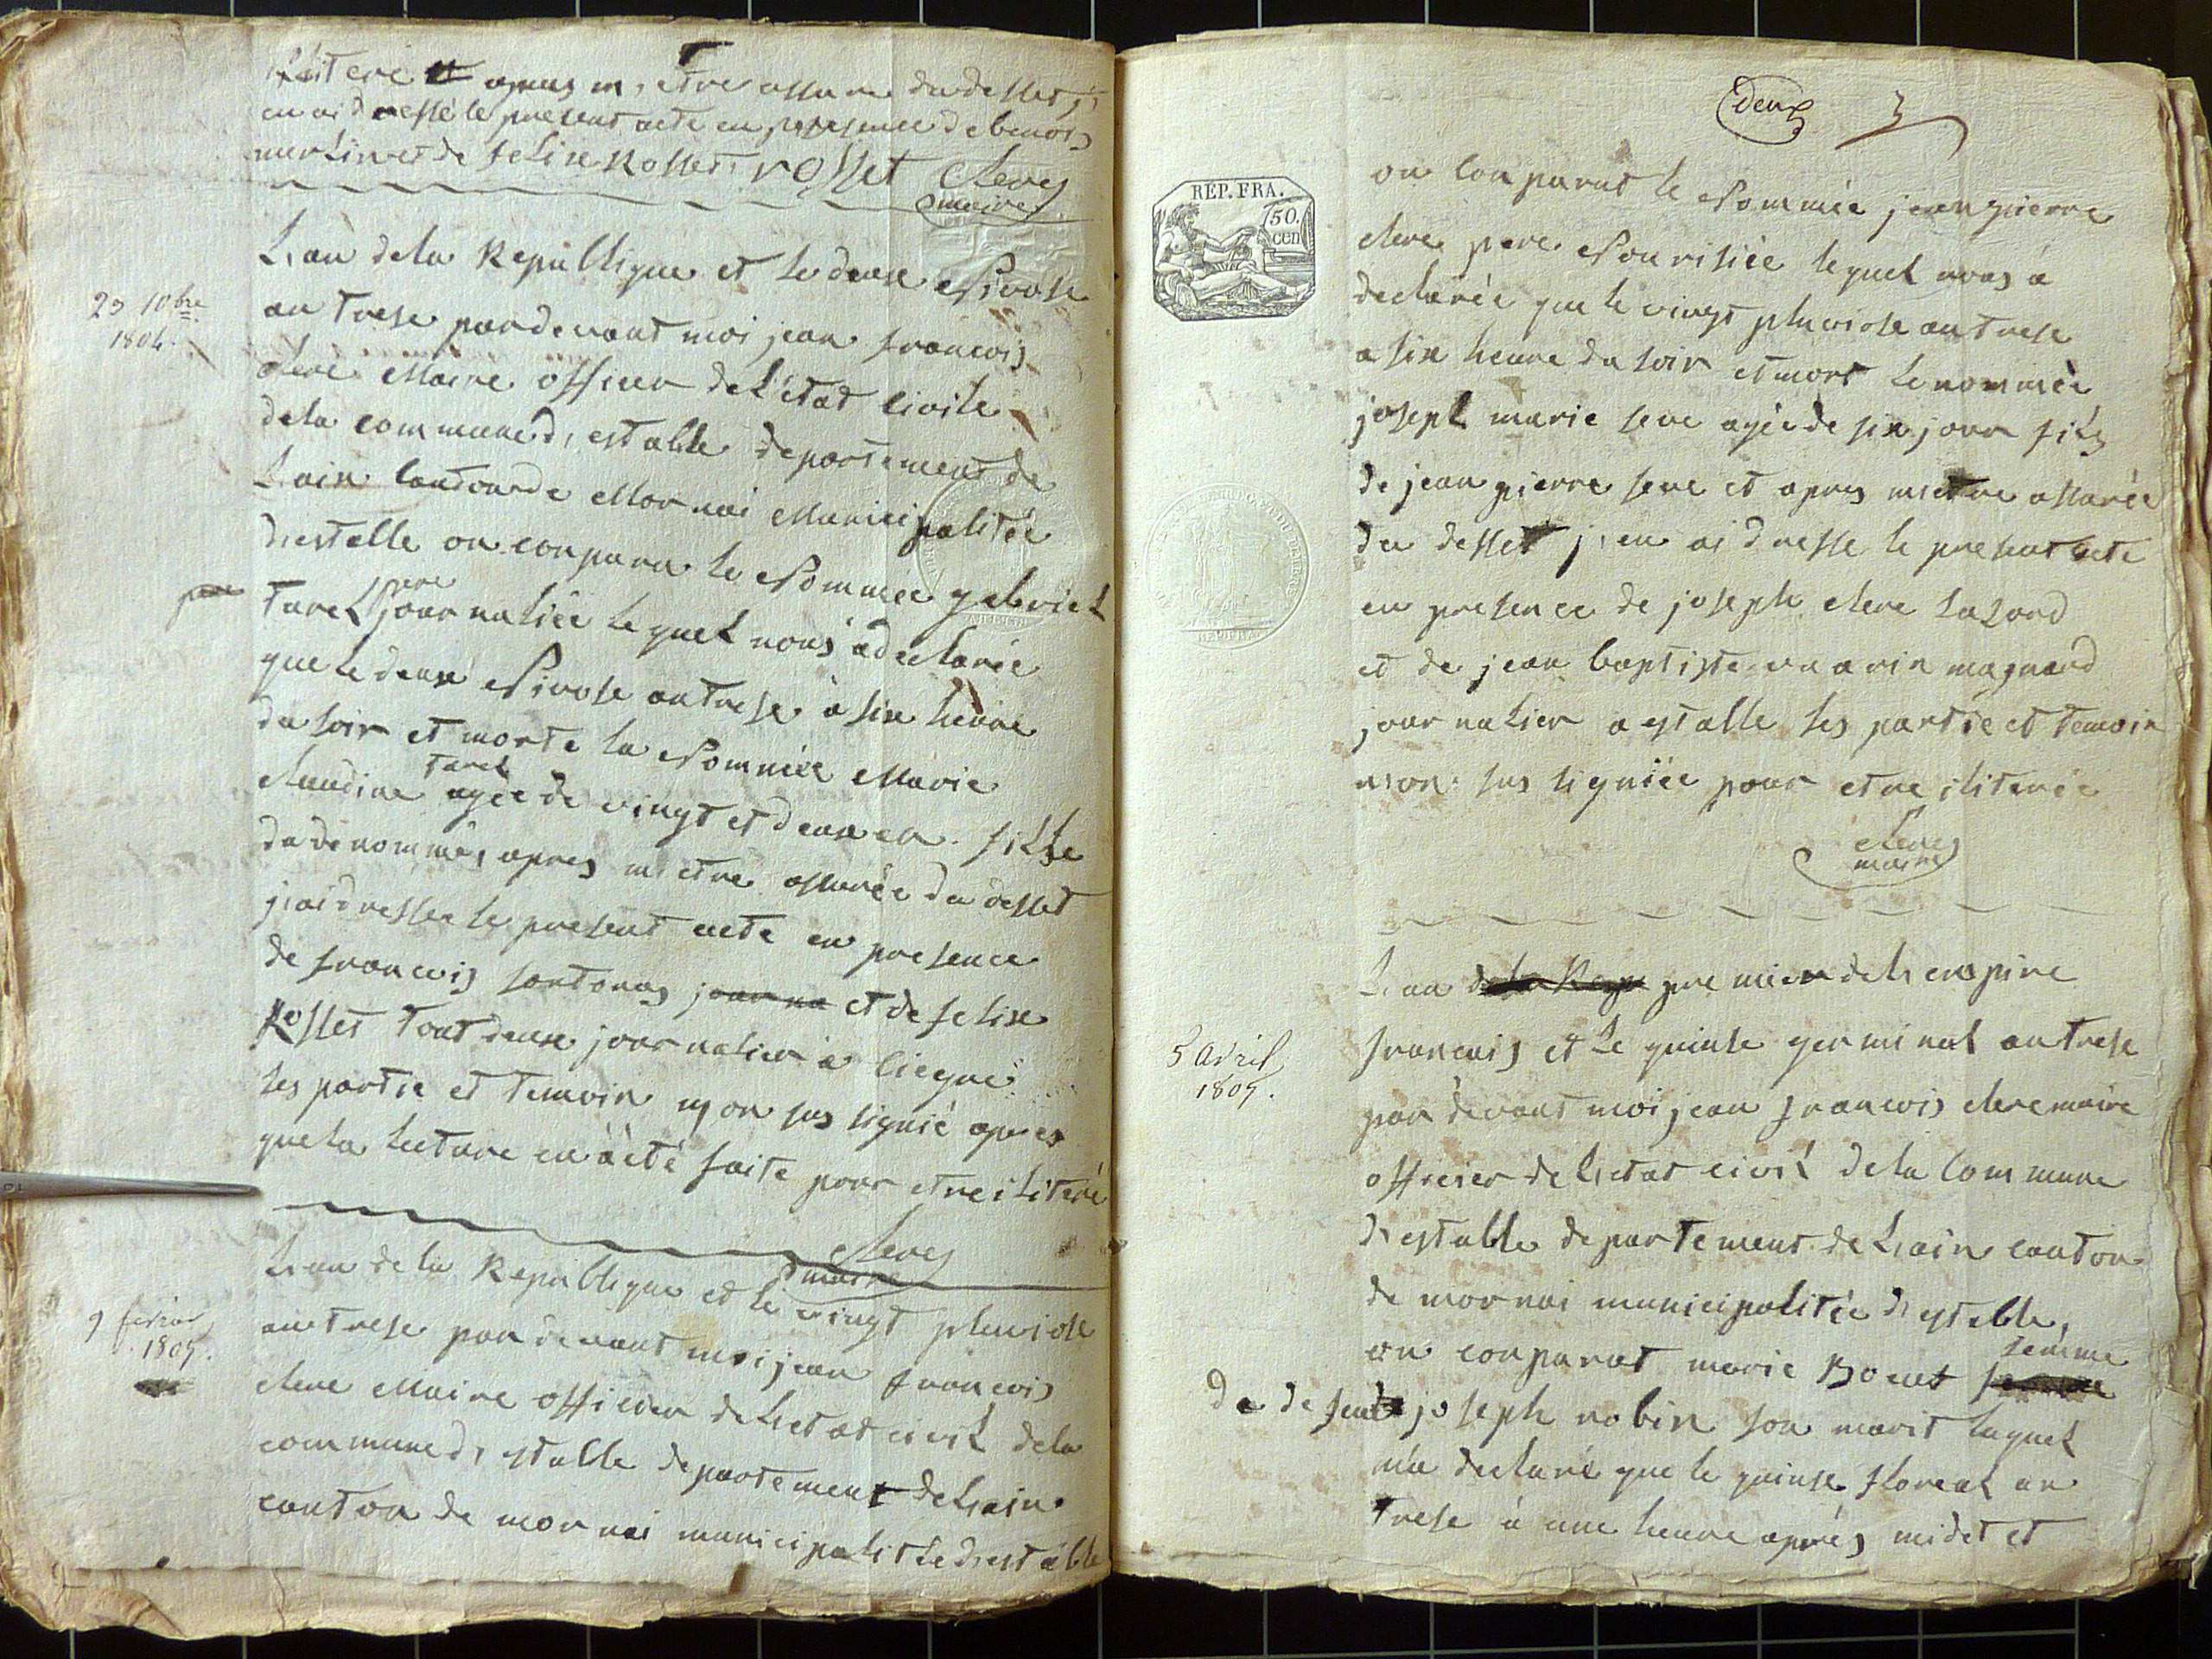 iliteré et apres m, etre assure du desset j,
en ai dressé le present acte en presence de benois
merlin et de felix Rosset, rosset Cleres
maire
23 10bre
1804.
L, an de la Republique et le deuse Nivose
an trese pardevant moi jean francois
clere Maire officier de L'etat civile
de la commune d, estable departement de
L ain Canton de Mornai Municipalitée
d, estable on conparu le Nommée gabriel
pere
Turel journaliée lequel nous a declarée
que le deuse Nivose an trese à six heure
du soir et morte la Nommée Marie
turel
claudine agée de vingt et deux an fille
du denommé, apres m etre assurée du desset
j, ai dressee le present acte en presence
de francois journa et de felix
Rosset tout deuse journalier a
les partie et temoin n, on sus signié apres
que la lecture en à été faite pour etre iliteré
Cleres
maire
9 fevrier
1805.
L, an de la Republique et le vingt pluviose
an trese par devant moi jean francois
clere Maire officier de L, etat civil de la
commune d, estable departement de L, ain
canton de mornai municipalitée d, estable
deux 3
REP. FRA.
50.
cen
on conparut le Nommée jean pierre
clere pere Nourisiée lequel nous à
declarée que le vingt pluviose an trese
a six heure du soir et mort le nommée
joseph marie seve agée de six jour fils
de jean pierre seve et apres m etre assurée
du desset j, en ai dresse le present acte
en presence de joseph clere
et de jean baptiste magnard
journalier a estable les partie et temoin
n, on sus signiée pour etre iliterée
Cleres
maire
5 Avril
1805.
L, an de la Rep premier de L, empire
francais et Le quinse germinal an trese
par devant moi jean francois clere maire
officier de L, etat civil de la Commune
d, estable departement de L, ain canton
de mornai municipalitée d, estable,
femme
on conparut marie femme
de joseph robin son marit laquel
m'a declaré que le quinse floreal an
trese à une heure aprés midet et